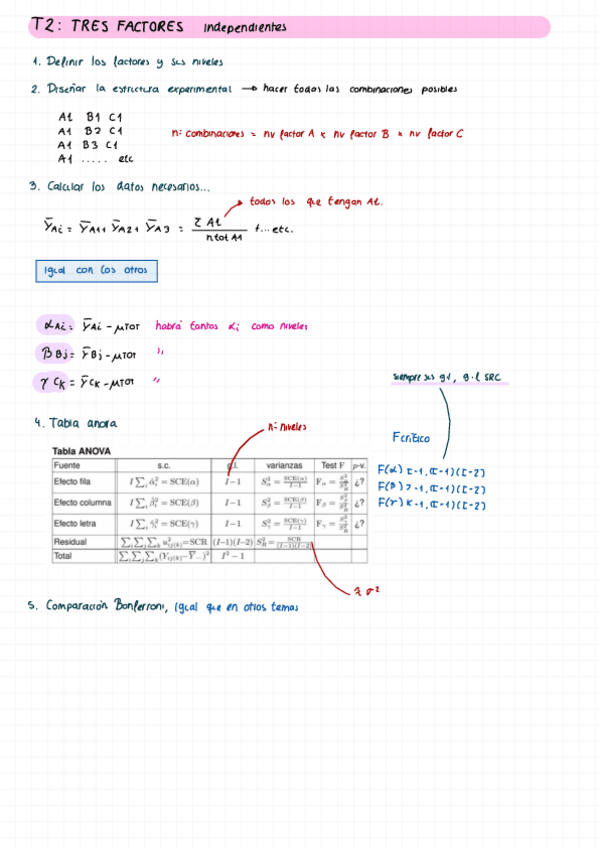 T2: TRES FACTORES independientes
1. Definir los factores y sus niveles
2. Diseñar la estructura experimental → hacer todas las combinaciones posibles
A1 B1 C1
A1 B2 C1
A1 B3 C1
A1 ..... etc
nº combinaciones = nv factor A x nv factor B x nv factor C
3. Calcular los datos necesarios...
todos los que tengan A1.
ȳAi = ȳA1+ ȳA2+ ȳA3 = Σ A1 / n tot A1 + ... etc.
Igual con los otros
αAi = ȳAi - μTOT habrá tantos αi como niveles
βBj = ȳBj - μTOT "
γCk = ȳCk - μTOT "
siempre sus gl, g.l SRC
4. Tabla anova
nº niveles
F crítico
Tabla ANOVA
Fuente s.c. g.l. varianzas Test F p-v.
Efecto fila I∑ᵢ α̂ᵢ² = SCE(α) I−1 S²α = SCE(α)/I−1 Fα = S²α/S²R ¿?
Efecto columna = SCE(β) I−1 S²β = SCE(β)/I−1 Fβ = S²β/S²R ¿?
Efecto letra = SCE(γ) I−1 S²γ = SCE(γ)/I−1 Fγ = S²γ/S²R ¿?
Residual ∑ᵢ∑ⱼ∑ₖ u²ij(k) = SCR (I−1)(I−2) S²R = SCR/(I−1)(I−2)
Total ∑ᵢ∑ⱼ∑ₖ(Yij(k)−Ȳ...)² I²−1
F(α) I-1, (I-1)(I-2)
F(β) J-1, (I-1)(I-2)
F(γ) K-1, (I-1)(I-2)
σ²
5. Comparación Bonferroni, igual que en otros temas